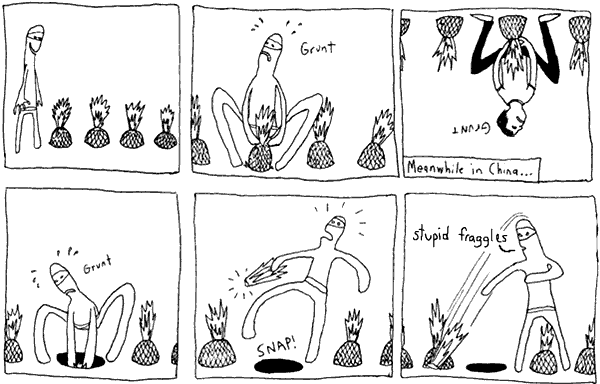 Grunt
GRUNT
Meanwhile in China...
Grunt
SNAP!
stupid fraggles